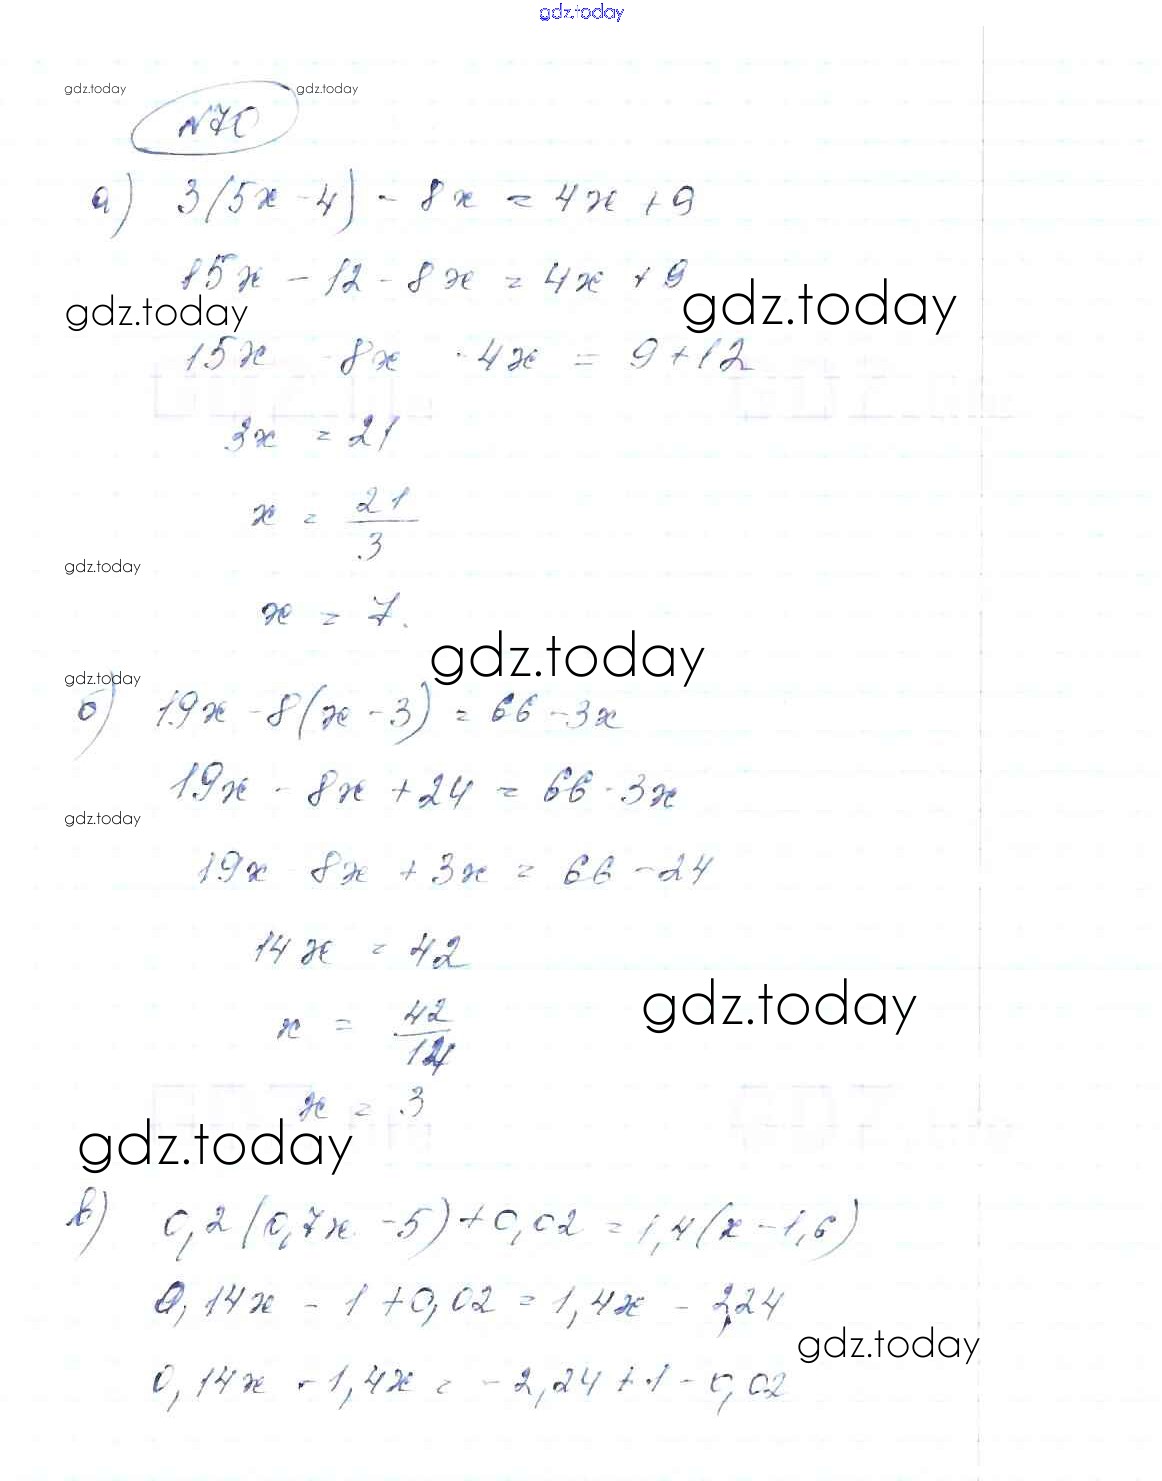 gdz.today
gdz.today gdz.today
№70
а) 3(5x - 4) - 8x = 4x + 9
15x - 12 - 8x = 4x + 9
gdz.today gdz.today
15x - 8x - 4x = 9 + 12
3x = 21
x = 21/3
gdz.today
x = 7.
gdz.today
gdz.today
б) 19x - 8(x - 3) = 66 - 3x
19x - 8x + 24 = 66 - 3x
gdz.today
19x - 8x + 3x = 66 - 24
14x = 42
gdz.today
x = 42/14
x = 3
gdz.today
в) 0,2(0,7x - 5) + 0,02 = 1,4(x - 1,6)
0,14x - 1 + 0,02 = 1,4x - 2,24
gdz.today
0,14x - 1,4x = -2,24 + 1 - 0,02